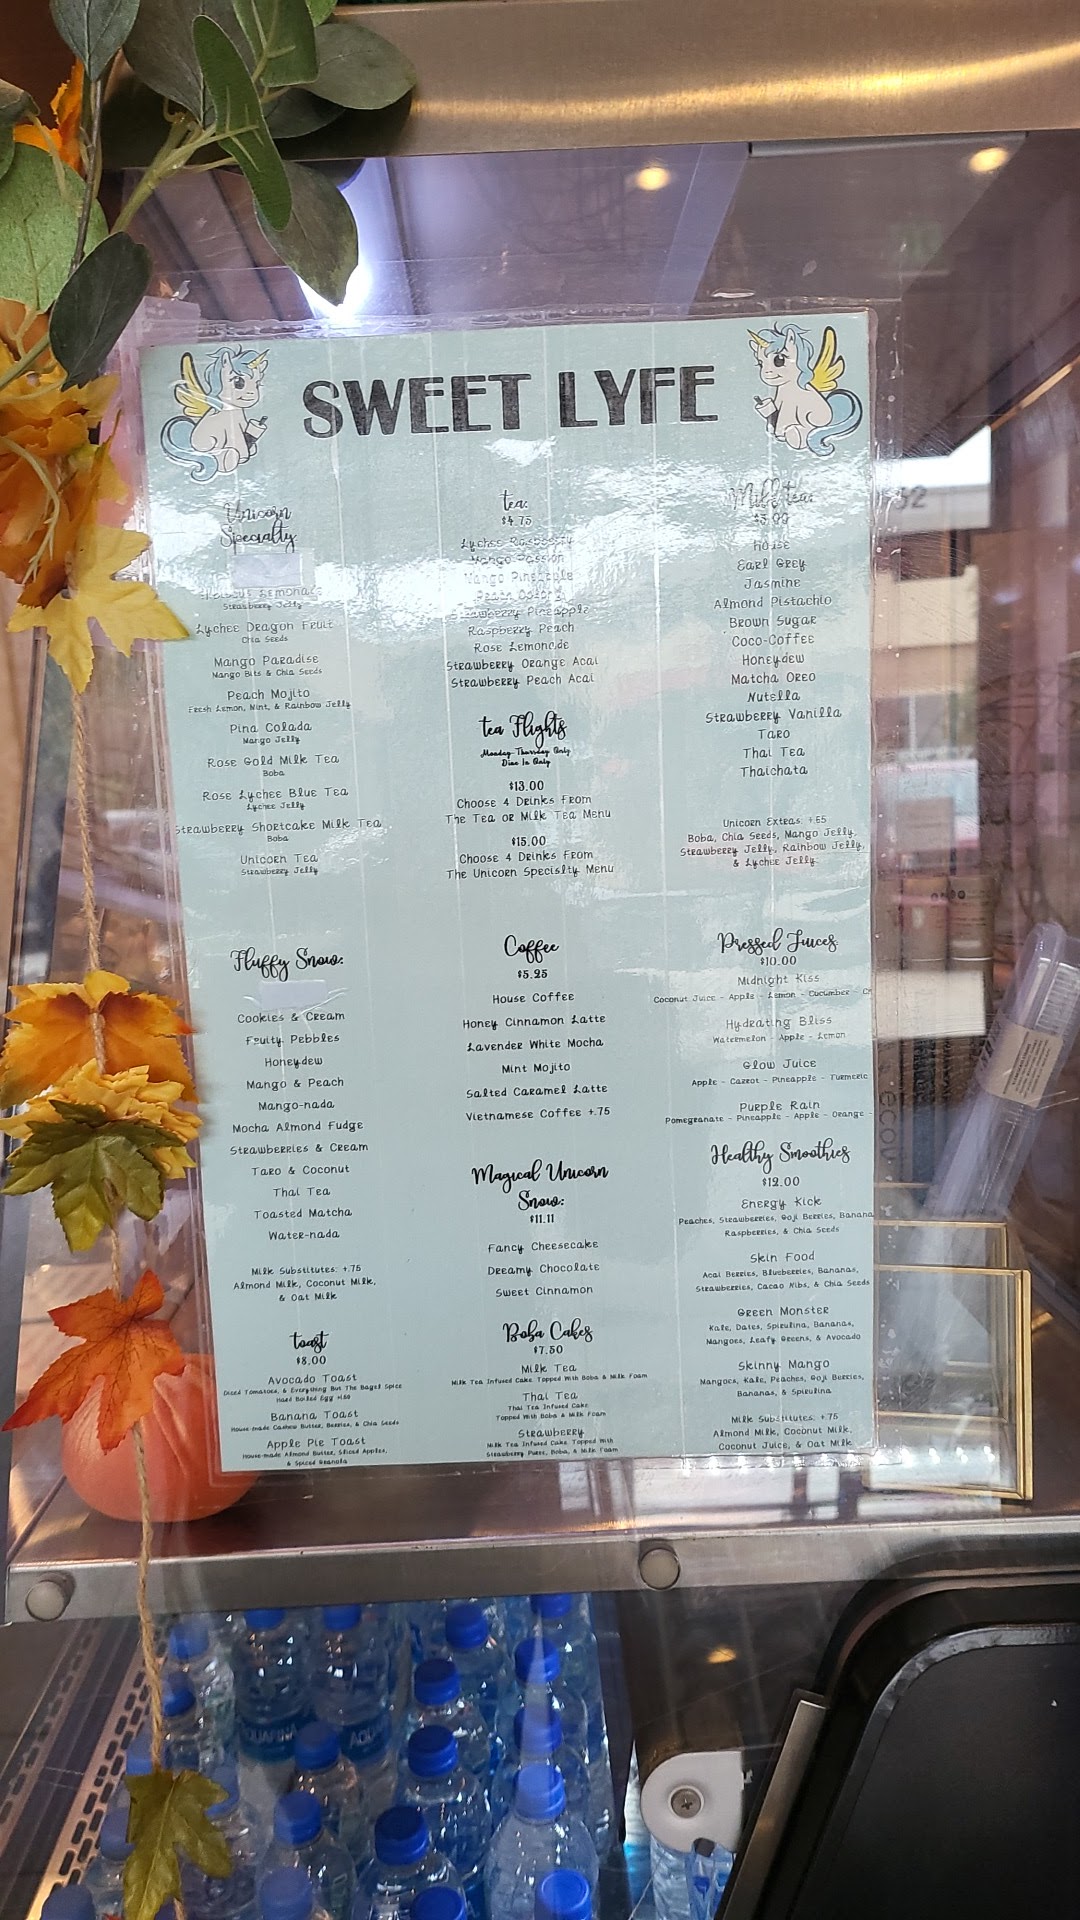 SWEET LYFE
Unicorn
Specialty
Lemonade
Strawberry Jelly
Lychee Dragon Fruit
Chia Seeds
Mango Paradise
Mango Bits & Chia Seeds
Peach Mojito
Fresh Lemon, Mint, & Rainbow Jelly
Pina Colada
Mango Jelly
Rose Gold Milk Tea
Boba
Rose Lychee Blue Tea
Lychee Jelly
Strawberry Shortcake Milk Tea
Boba
Unicorn Tea
Strawberry Jelly
tea:
$4.75
Lychee Raspberry
Mango Passion
Mango Pineapple
Peach
Strawberry Pineapple
Raspberry Peach
Rose Lemonade
Strawberry Orange Acai
Strawberry Peach Acai
tea Flights
Monday-Thursday Only
Dine In Only
$13.00
Choose 4 Drinks From
The Tea or Milk Tea Menu
$15.00
Choose 4 Drinks From
The Unicorn Specialty Menu
Milk tea:
House
Earl Grey
Jasmine
Almond Pistachio
Brown Sugar
Coco-Coffee
Honeydew
Matcha Oreo
Nutella
Strawberry Vanilla
Taro
Thai Tea
Thaichata
Unicorn Extras: +.55
Boba, Chia Seeds, Mango Jelly,
Strawberry Jelly, Rainbow Jelly,
& Lychee Jelly
Fluffy Snow:
Cookies & Cream
Fruity Pebbles
Honeydew
Mango & Peach
Mango-nada
Mocha Almond Fudge
Strawberries & Cream
Taro & Coconut
Thai Tea
Toasted Matcha
Water-nada
Milk Substitutes: +.75
Almond Milk, Coconut Milk,
& Oat Milk
toast
$8.00
Avocado Toast
Diced Tomatoes, & Everything But The Bagel Spice
Hard Boiled Egg +1.50
Banana Toast
House-made Cashew Butter, Berries, & Chia Seeds
Apple Pie Toast
House-made Almond Butter, Sliced Apples,
& Spiced Granola
Coffee
$5.25
House Coffee
Honey Cinnamon Latte
Lavender White Mocha
Mint Mojito
Salted Caramel Latte
Vietnamese Coffee +.75
Magical Unicorn
Snow:
$11.11
Fancy Cheesecake
Dreamy Chocolate
Sweet Cinnamon
Boba Cakes
$7.50
Milk Tea
Milk Tea Infused Cake Topped With Boba & Milk Foam
Thai Tea
Thai Tea Infused Cake
Topped With Boba & Milk Foam
Strawberry
Milk Tea Infused Cake Topped With
Strawberry Puree, Boba, & Milk Foam
Pressed Juices
$10.00
Midnight Kiss
Coconut Juice - Apple - Lemon - Cucumber - Ch
Hydrating Bliss
Watermelon - Apple - Lemon
Glow Juice
Apple - Carrot - Pineapple - Turmeric
Purple Rain
Pomegranate - Pineapple - Apple - Orange -
Healthy Smoothies
$12.00
Energy Kick
Peaches, Strawberries, Goji Berries, Banana
Raspberries, & Chia Seeds
Skin Food
Acai Berries, Blueberries, Bananas,
Strawberries, Cacao Nibs, & Chia Seeds
Green Monster
Kale, Dates, Spirulina, Bananas,
Mangoes, Leafy Greens, & Avocado
Skinny Mango
Mangoes, Kale, Peaches, Goji Berries,
Bananas, & Spirulina
Milk Substitutes: +.75
Almond Milk, Coconut Milk,
Coconut Juice, & Oat Milk
AQUAFINA
AQUA